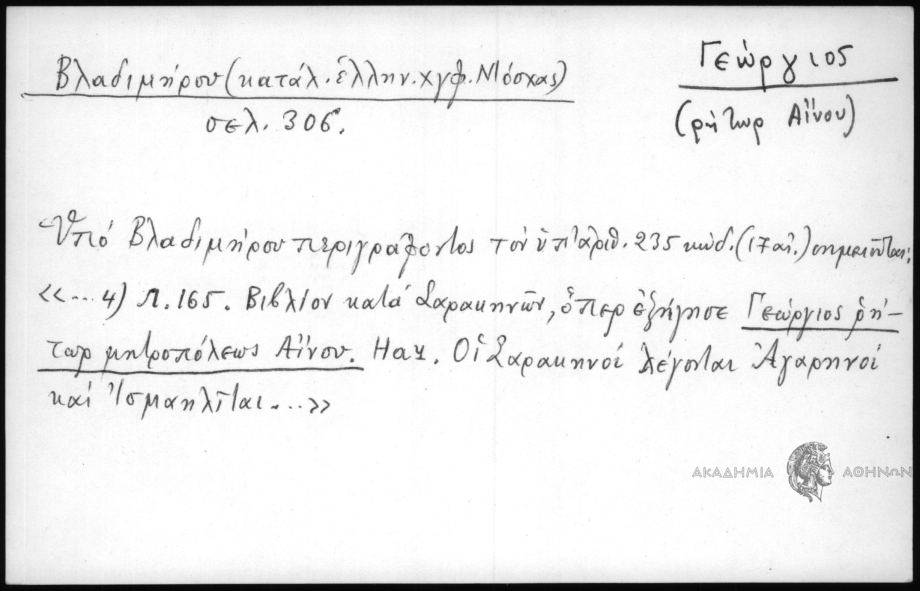 Βλαδιμήρου (κατάλ. ἑλλην. χγφ. Μόσχας)
σελ. 306.
Γεώργιος
(ρήτωρ Αἴνου)
Ὑπό Βλαδιμήρου περιγράφοντος τόν ὑπ' ἀριθ. 235 κώδ. (17 αἰ.) σημειοῦται:
«... 4) Л. 165. Βιβλίον κατά Σαρακηνῶν, ὅπερ ἐξήγησε Γεώργιος ῥή-
τωρ μητροπόλεως Αἴνου. Нач. Οἱ Σαρακηνοί λέγονται Ἀγαρηνοί
καί Ἰσμαηλῖται...»
ΑΚΑΔΗΜΙΑ ΑΘΗΝΩΝ